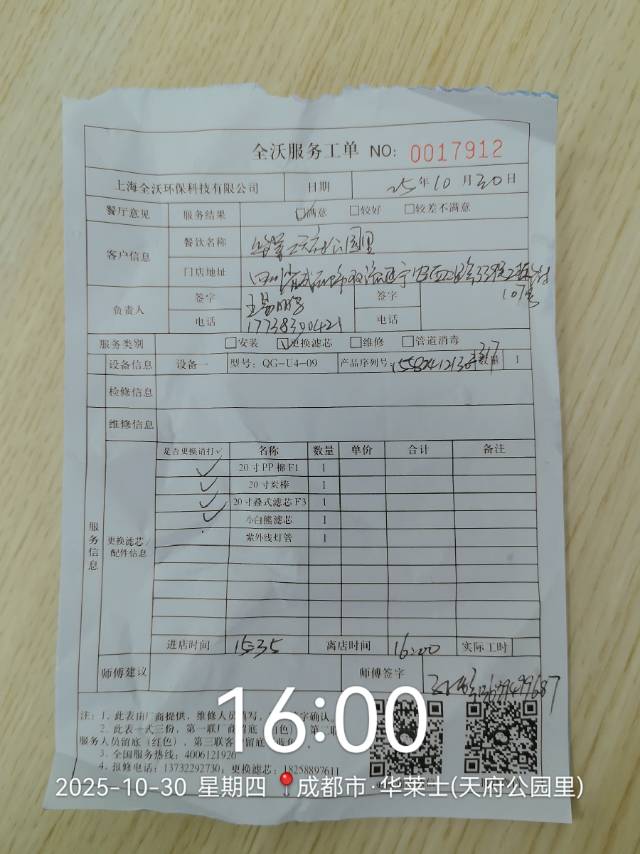 全沃服务工单 NO: 0017912
上海全沃环保科技有限公司 日期 25年10月30日
餐厅意见 服务结果 满意 较好 较差不满意
客户信息 餐饮名称 天府公园里
门店地址 四川省成都市双流区 107号
负责人 签字 签字
电话 17738300421 电话
服务类别 安装 更换滤芯 维修 管道消毒
设备信息 设备一 型号: QG-U4-09 产品序列号: 1
检修信息
维修信息
服务信息
更换滤芯/配件信息
是否更换请打√ 名称 数量 单价 合计 备注
√ 20寸PP棉F1 1
√ 20寸炭棒 1
√ 20寸叠式滤芯F3 1
√ 小白熊滤芯 1
紫外线灯管 1
进店时间 15:35 离店时间 16:00 实际工时
师傅建议 师傅签字
注: 1、此表由厂商提供, 维修人员填写, 字确认。
2、此表一式三份, 第一联厂商留底 色), 第二联
服务人员留底(红色), 第三联客
3、全国服务热线: 4006121920
4、报修电话: 13732292730; 更换滤芯: 18258897611
16:00
2025-10-30 星期四 成都市·华莱士(天府公园里)